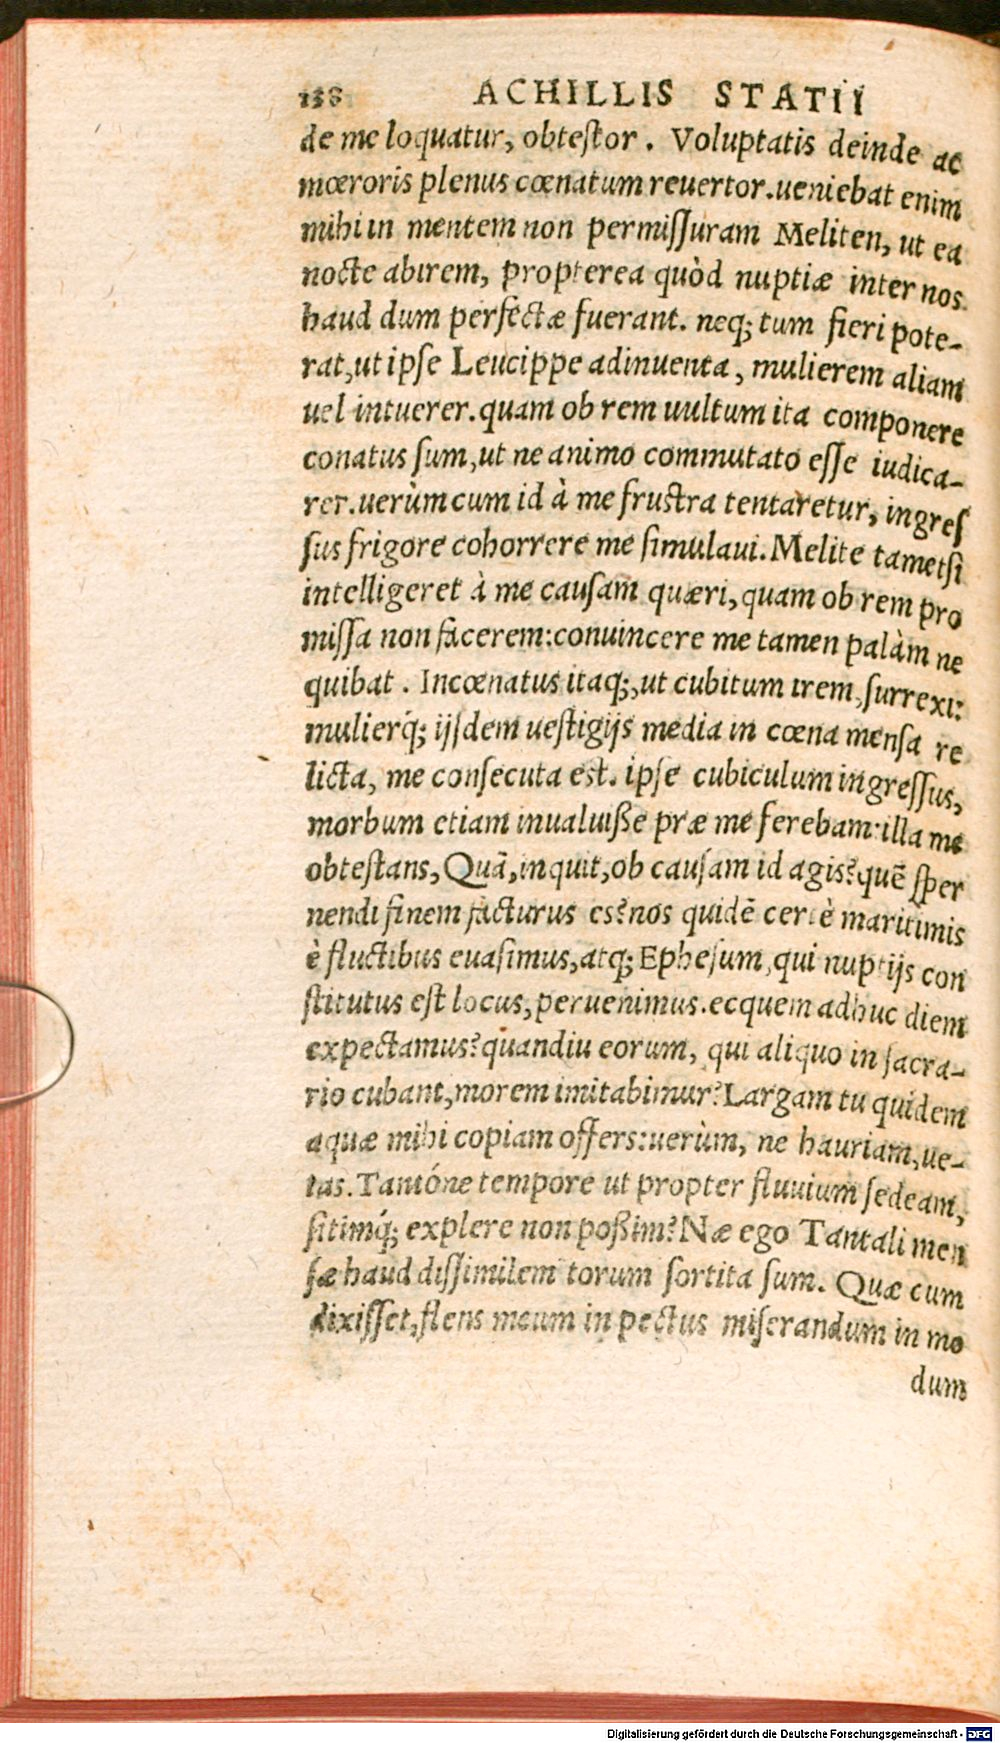 138 ACHILLIS STATII
de me loquatur, obtestor. Voluptatis deinde ac
mœroris plenus cœnatum reuertor. ueniebat enim
mihi in mentem non permissuram Meliten, ut ea
nocte abirem, propterea quòd nuptiæ inter nos
haud dum perfectæ fuerant. neq; tum fieri pote-
rat, ut ipse Leucippe adinuenta, mulierem aliam
uel intuerer. quam ob rem uultum ita componere
conatus sum, ut ne animo commutato esse iudica-
rer. uerùm cum id à me frustra tentaretur, ingres
sus frigore cohorrere me simulaui. Melite tametsi
intelligeret à me causam quæri, quam ob rem pro
missa non facerem: conuincere me tamen palàm ne
quibat. Incœnatus itaq;, ut cubitum irem, surrexi:
mulierq́; ijsdem uestigijs media in cœna mensa re
licta, me consecuta est. ipse cubiculum ingressus,
morbum etiam inualuiße præ me ferebam: illa me
obtestans, Quā, inquit, ob causam id agis? quē sper
nendi finem facturus es? nos quidē certè maritimis
è fluctibus euasimus, atq; Ephesum, qui nuptijs con
stitutus est locus, peruenimus. ecquem adhuc diem
expectamus? quandiu eorum, qui aliquo in sacra-
rio cubant, morem imitabimur? Largam tu quidem
aquæ mihi copiam offers: uerùm, ne hauriam, ue-
tas. Tantóne tempore ut propter fluuium sedeam,
sitimq́; explere non poßim? Næ ego Tantali men
sæ haud dissimilem torum sortita sum. Quæ cum
dixisset, flens meum in pectus miserandum in mo
dum
Digitalisierung gefördert durch die Deutsche Forschungsgemeinschaft - DFG